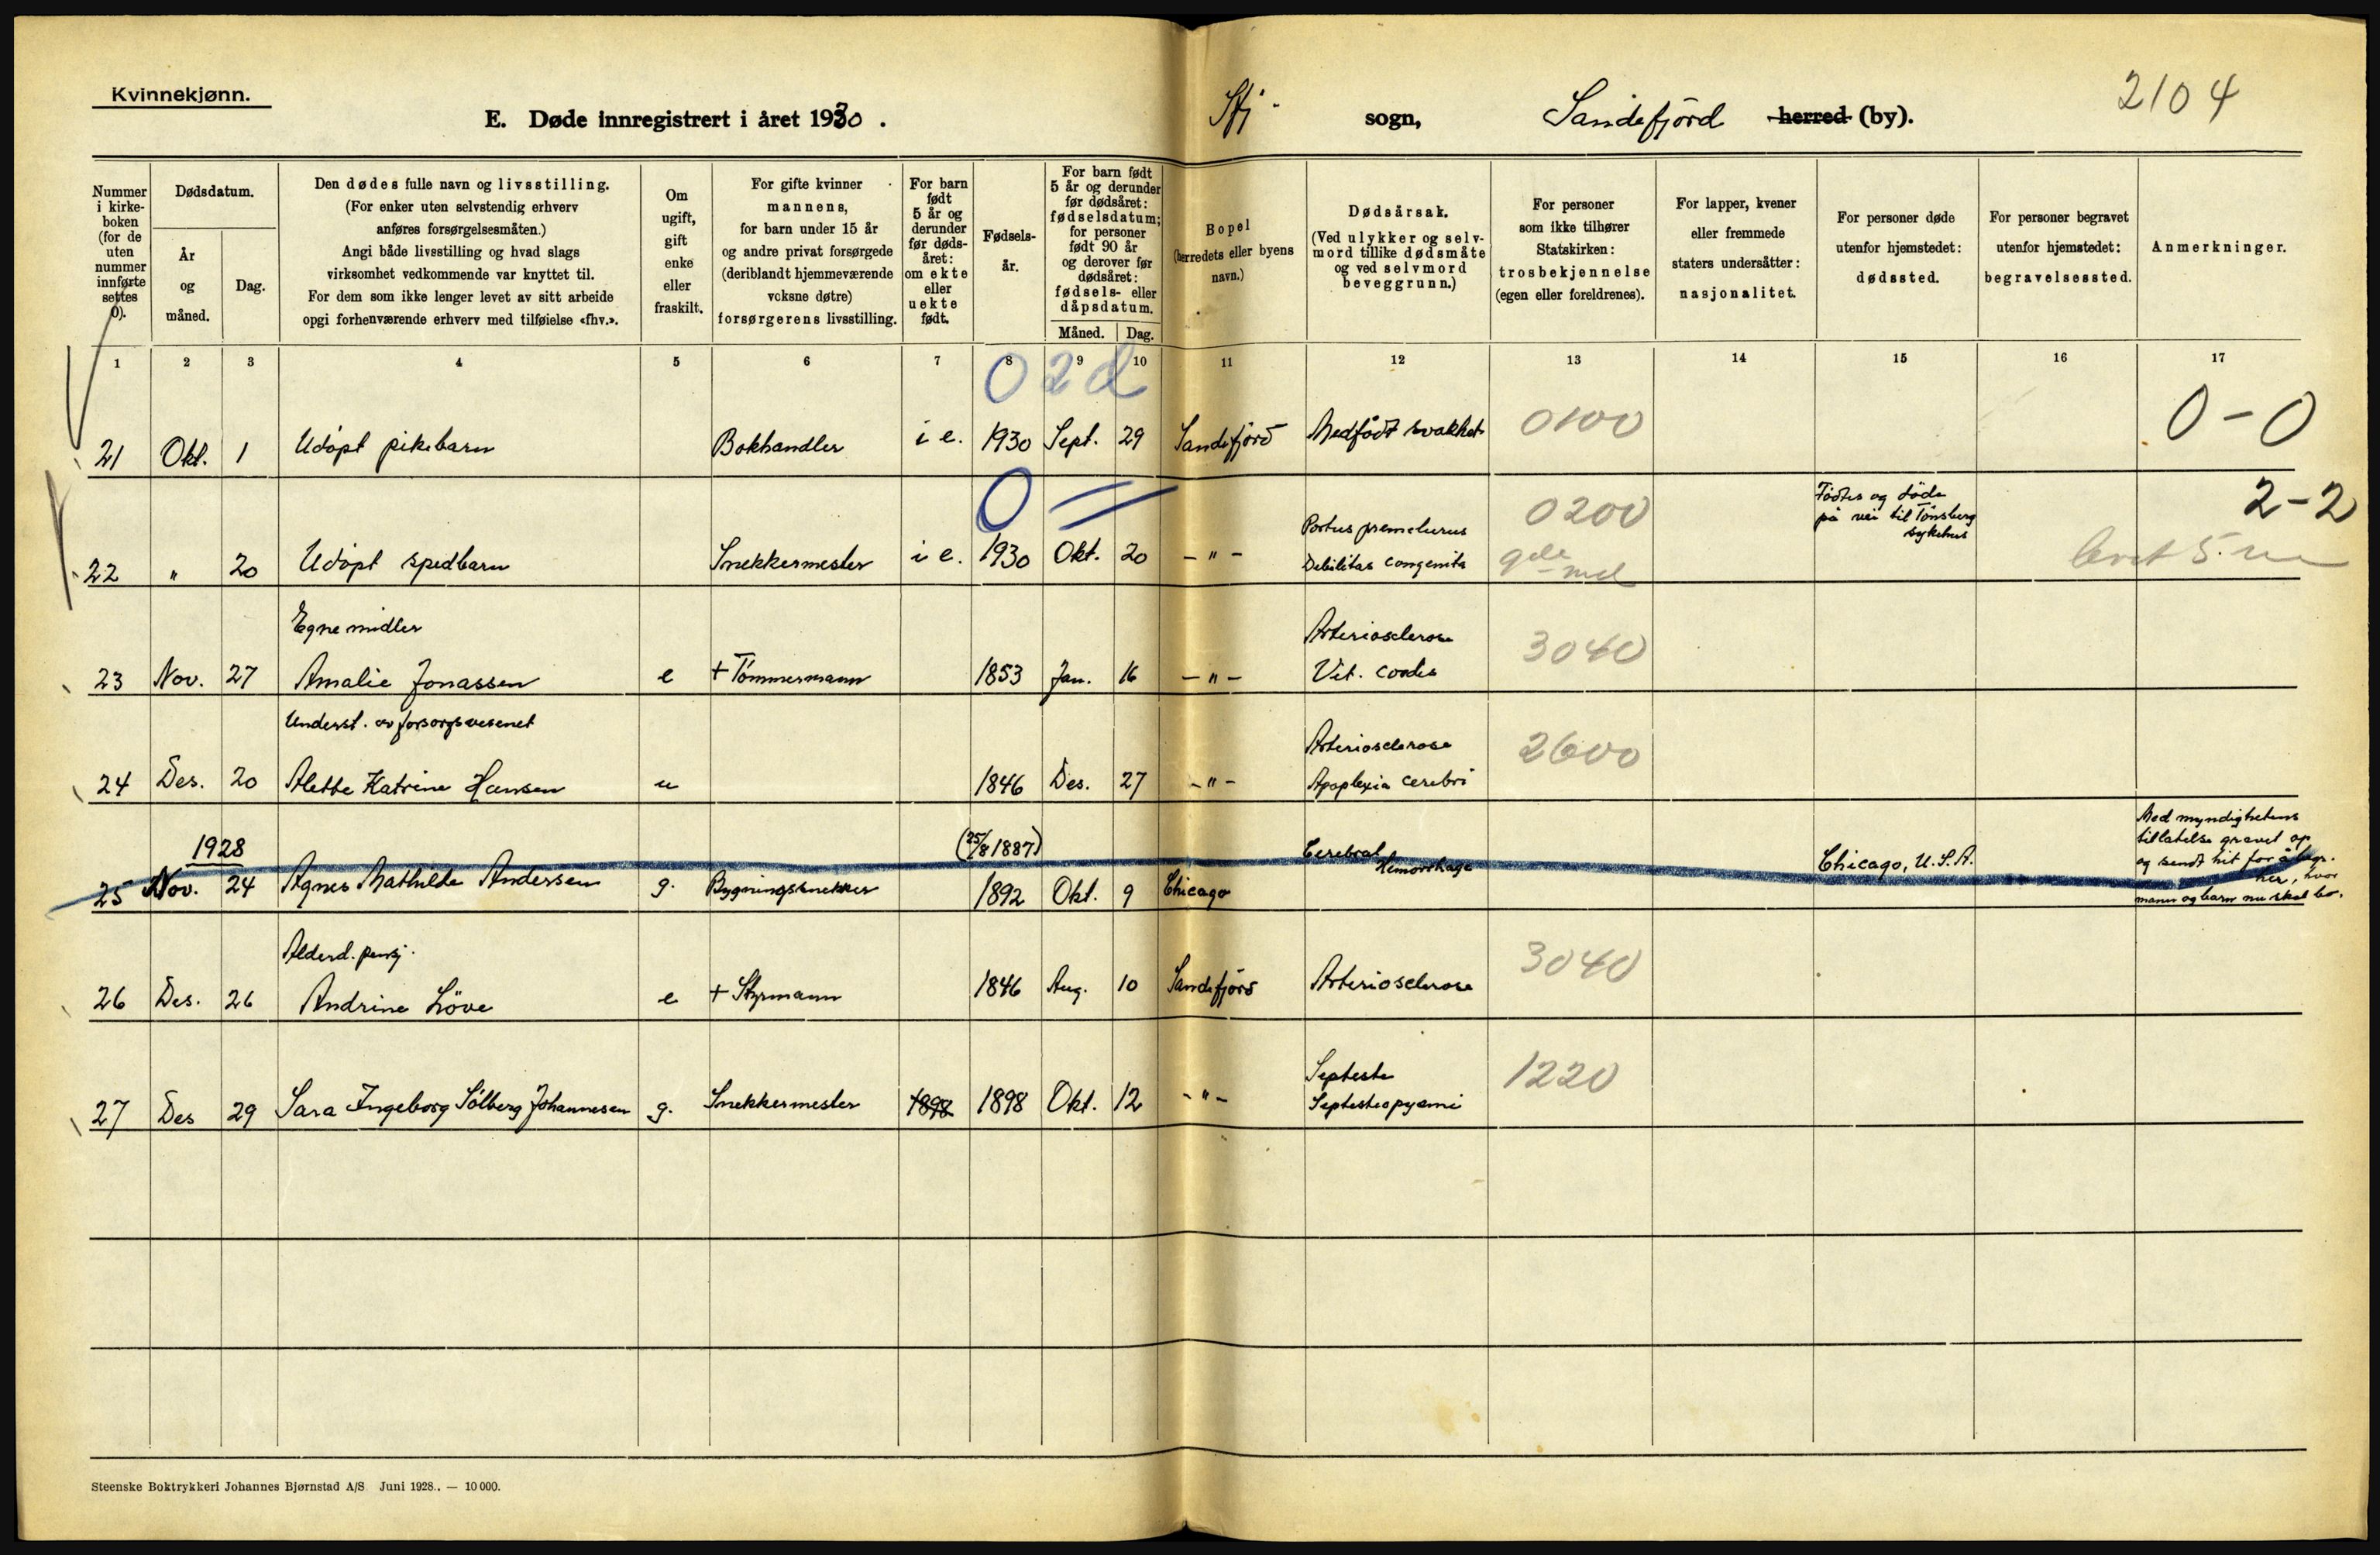 Kvinnekjønn.
E. Døde innregistrert i året 1930.
Sfj. sogn, Sandefjord herred (by).
2104
Nummer i kirke-boken (for de uten nummer innførte settes 0).
Dødsdatum.
År og måned.
Dag.
Den dødes fulle navn og livsstilling.
(For enker uten selvstendig erhverv
anføres forsørgelsesmåten.)
Angi både livsstilling og hvad slags
virksomhet vedkommende var knyttet til.
For dem som ikke lenger levet av sitt arbeide
opgi forhenværende erhverv med tilføielse «fhv.».
Om ugift, gift enke eller fraskilt.
For gifte kvinner
mannens,
for barn under 15 år
og andre privat forsørgede
(deriblandt hjemmeværende
voksne døtre)
forsørgerens livsstilling.
For barn født 5 år og derunder før døds-året: om ekte eller uekte født.
Fødsels-år.
For barn født
5 år og derunder
før dødsåret:
fødselsdatum;
for personer
født 90 år
og derover før
dødsåret:
fødsels- eller
dåpsdatum.
Måned. Dag.
Bopel
(herredets eller byens
navn.)
Dødsårsak.
(Ved ulykker og selv-
mord tillike dødsmåte
og ved selvmord
beveggrunn.)
For personer
som ikke tilhører
Statskirken:
trosbekjennelse
(egen eller foreldrenes).
For lapper, kvener
eller fremmede
staters undersåtter:
nasjonalitet.
For personer døde
utenfor hjemstedet:
dødssted.
For personer begravet
utenfor hjemstedet:
begravelsessted.
Anmerkninger.
1 2 3 4 5 6 7 8 9 10 11 12 13 14 15 16 17
02d
21 Okt. 1 Udöpt pikebarn Bokhandler i e. 1930 Sept. 29 Sandefjord Medfødt svakhet 0100 0-0
0 =
Fødtes og døde
på vei til Tönsberg
sykehus
2-2
Partus prematurus 0200
22 " 20 Udöpt spedbarn Snekkermester i e. 1930 Okt. 20 -"- Debilitas congenita levet 5
Egne midler Arteriosclerose 3040
23 Nov. 27 Amalie Jonassen e + Tömmermann 1853 Jan. 16 -"- Vit. cordis
Underst. av forsorgsvesenet Arteriosclerose 2600
24 Des. 20 Alette Katrine Hansen u 1846 Des. 27 -"- Apoplexia cerebri
1928 (25/8 1887) Cerebral
25 Nov. 24 Agnes Mathilde Andersen g. Bygningssnekker 1892 Okt. 9 Chicago Hemorrhage Chicago, U.S.A.
Med myndighetens
tillatelse gravet op
og sendt hit for å begr.
her, hvor
mann og barn nu skal bo.
Alderd. pensj.
26 Des. 26 Andrine Löve e + Styrmann 1846 Aug. 10 Sandefjord Arteriosclerose 3040
Septeste 1220
27 Des 29 Sara Ingeborg Sólberg Johannesen g. Snekkermester 1898 1898 Okt. 12 -"- Septesteopyemi
Steenske Boktrykkeri Johannes Bjørnstad A/S Juni 1928.. — 10 000.